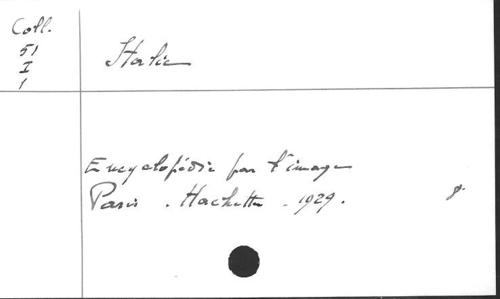 Coll.
51
I
1
Italie
Encyclopédie par l'image
Paris. Hachette. 1929.
8.